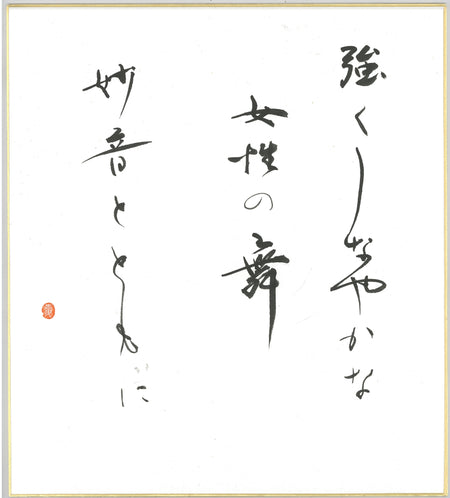 強くしなやかな
女性の舞
妙音とともに